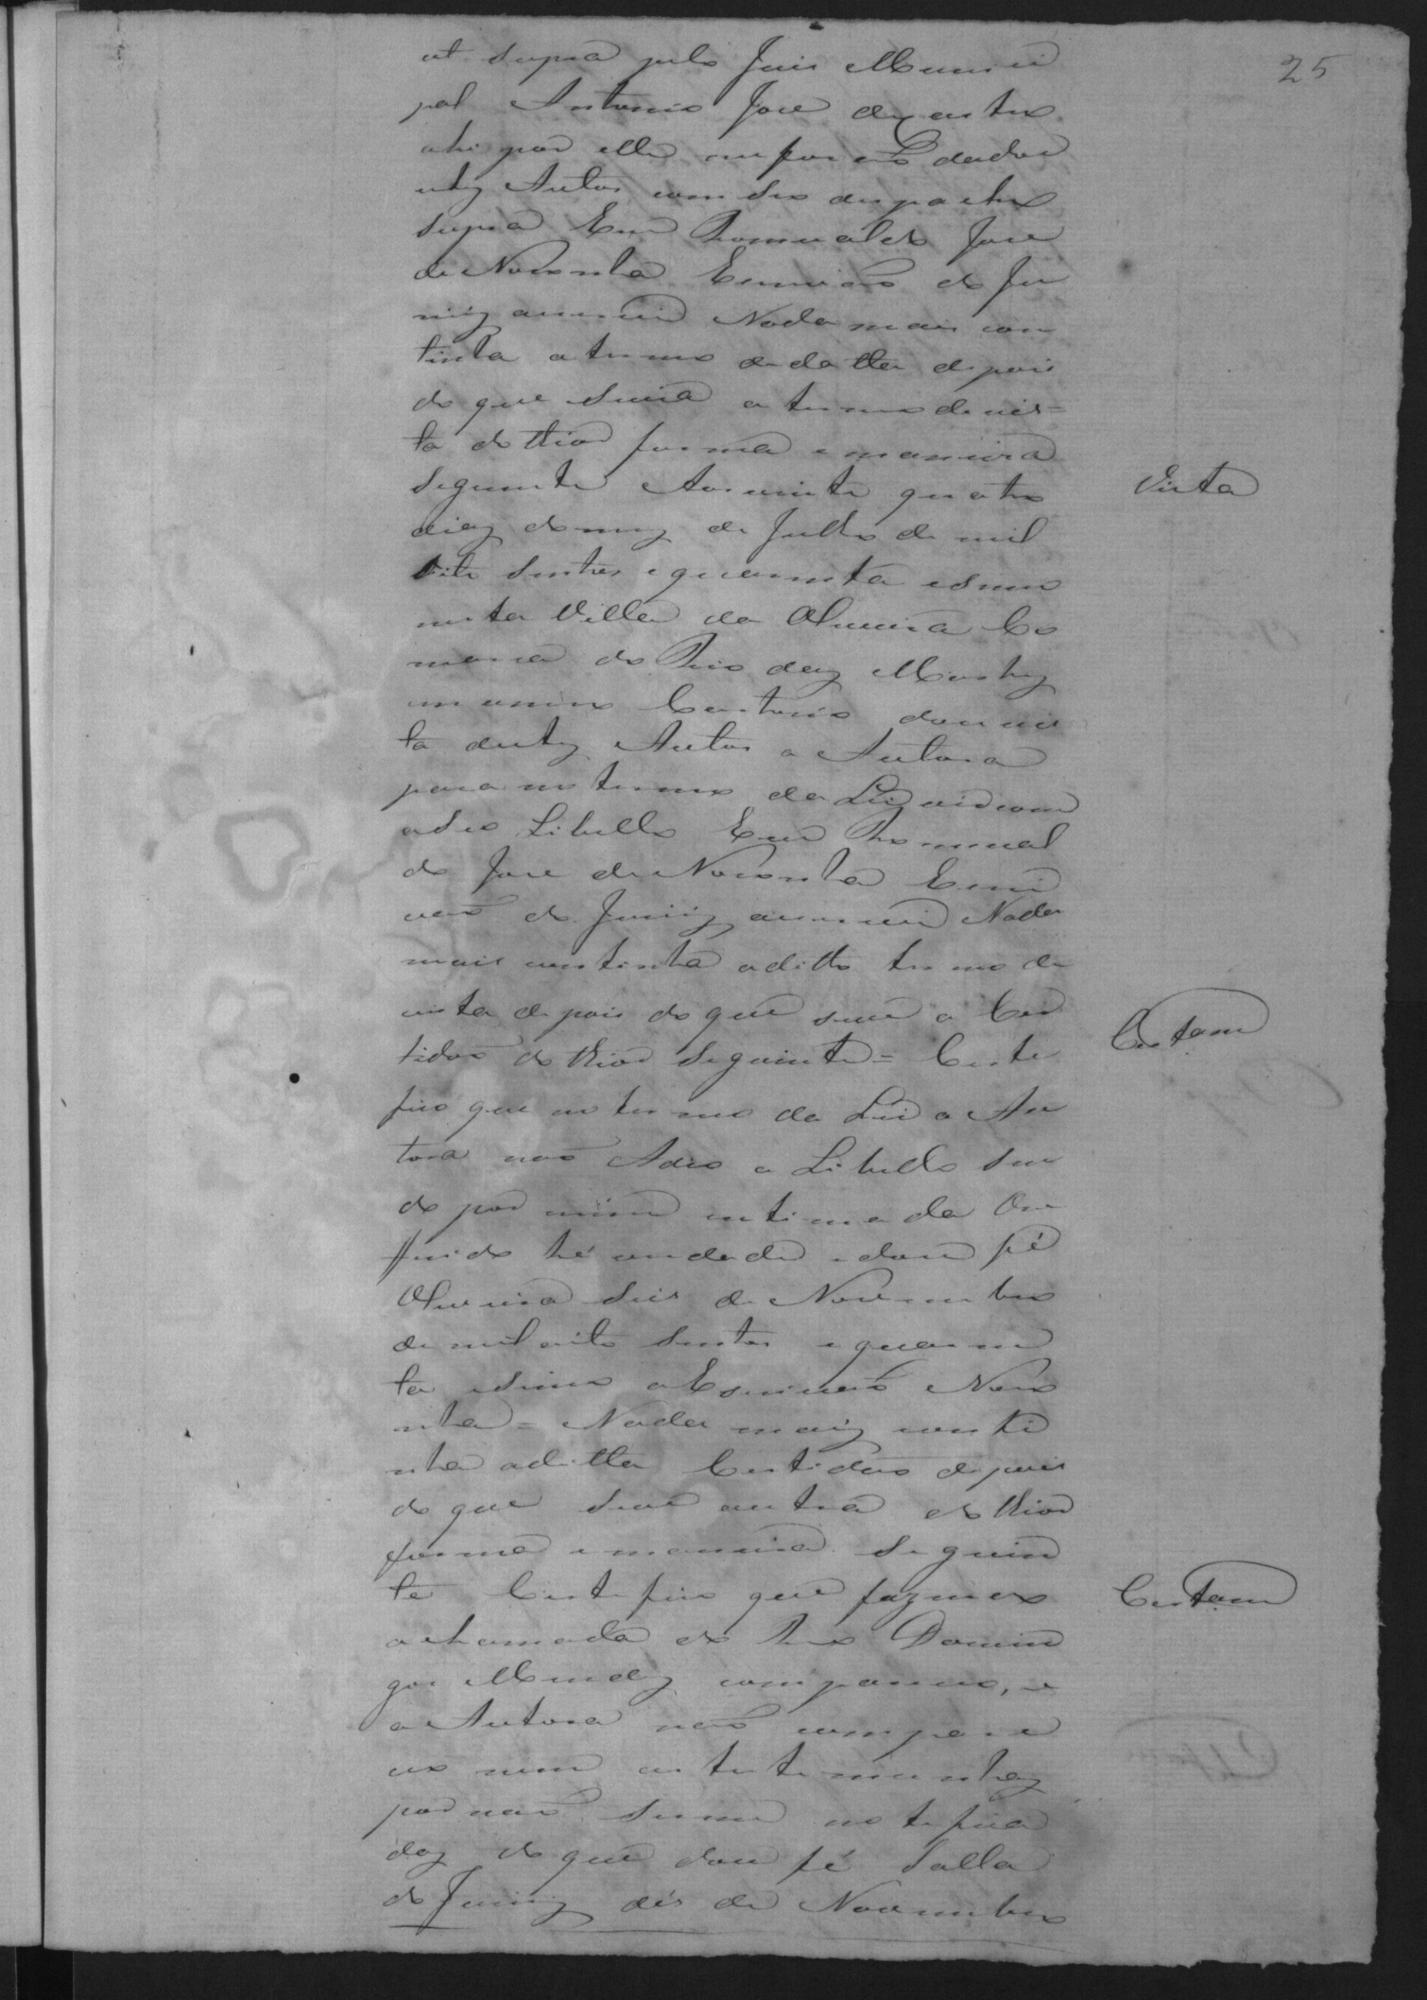 25
ut supra pelo Juis Munici
pal Antonio Jose de Castro
ahi por elle me foraõ dados
estes Autos com seo despacho
supra Eu Romualdo Jose
de Noronha Escrivaõ do Ju
ry escrevi Nada mais con
tinha o termo de datta depois
do que seguia o termo de vis=
ta do thior forma e maneira
Vista
seguinte Aos vinte quatro
dias do mes de Julho de mil
oito sentos e quarenta e sinco
nesta Villa da Oliveira Co
marca do Rio das Mortes
em o meu Cartorio dou vis
ta destes Autos a Autora
para no termo da Lei vir com
o seo Libello Eu Romual
do Jose de Noronha Escri
vaõ do Jury escrevi Nada
mais continha o ditto termo de
vista depois do que segue a Cer
tidaõ do thior seguinte = Certe
fico que no termo da Lei a Au
tora naõ deo o Libello sen
do por mim intimada O re
ferido hé verdade e dou fé
Oliveira seis de Novembro
de mil oito sentos e quaren
ta e sinco o Escrivaõ Noro
nha = Nada mais conti
nha a ditta Certidaõ depois
do que segue outra do thior
forma e maneira seguin
te Certefico que fazendo
a chamada do Reo Domin
gos Mendes compareceo, e
a Autora naõ compare
ceo nem as testemunhas
por naõ serem notefica
das do que dou fé Salla
do Jury dés de Novembro